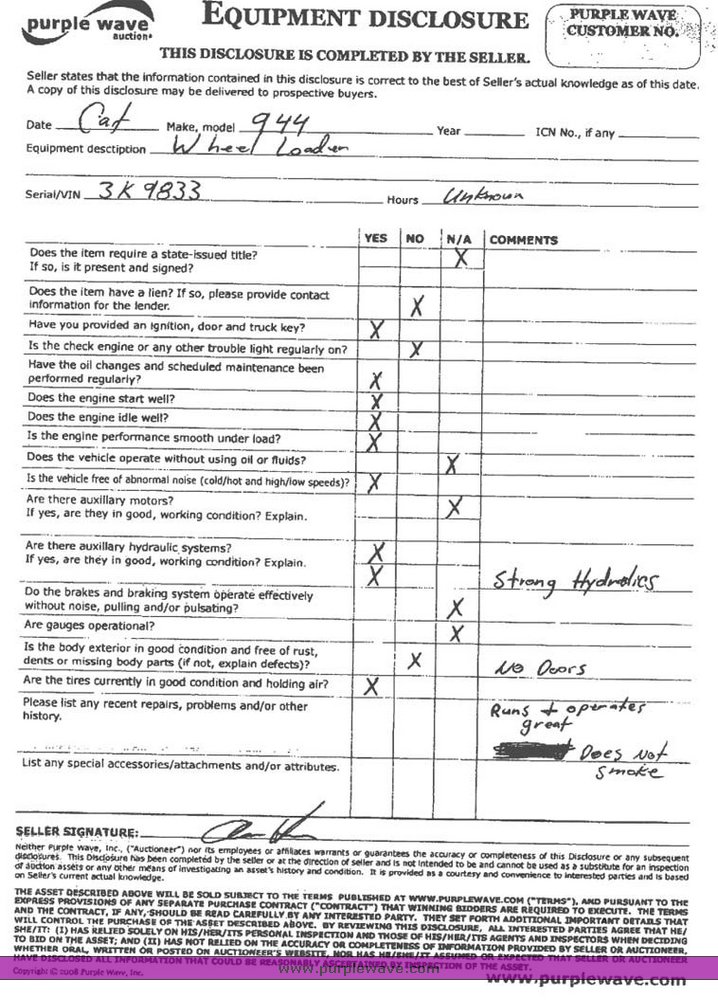 purple wave
auction
EQUIPMENT DISCLOSURE
PURPLE WAVE
CUSTOMER NO.
THIS DISCLOSURE IS COMPLETED BY THE SELLER.
Seller states that the information contained in this disclosure is correct to the best of Seller's actual knowledge as of this date.
A copy of this disclosure may be delivered to prospective buyers.
Date Cat Make, model 944 Year ICN No., if any
Equipment desctiption Wheel Loader
Serial/VIN 3K9833 Hours Unknown
YES NO N/A COMMENTS
Does the item require a state-issued title? X
If so, is it present and signed?
Does the item have a lien? If so, please provide contact
information for the lender. X
Have you provided an ignition, door and truck key? X
Is the check engine or any other trouble light regularly on? X
Have the oil changes and scheduled maintenance been
performed regularly? X
Does the engine start well? X
Does the engine idle well? X
Is the engine performance smooth under load? X
Does the vehicle operate without using oil or fluids? X
Is the vehicle free of abnormal noise (cold/hot and high/low speeds)? X
Are there auxillary motors? X
If yes, are they in good, working condition? Explain.
Are there auxillary hydraulic systems? X
If yes, are they in good, working condition? Explain. X Strong Hydralics
Do the brakes and braking system operate effectively
without noise, pulling and/or pulsating? X
Are gauges operational? X
Is the body exterior in good condition and free of rust,
dents or missing body parts (if not, explain defects)? X No Doors
Are the tires currently in good condition and holding air? X
Please list any recent repairs, problems and/or other
history.
Runs + operates
great
Does Not
smoke
List any special accessories/attachments and/or attributes.
SELLER SIGNATURE:
Neither Purple Wave, Inc., ("Auctioneer") nor its employees or affiliates warrants or guarantees the accuracy or completeness of this Disclosure or any subsequent
disclosures. This Disclosure has been completed by the seller or at the direction of seller and is not intended to be and cannot be used as a substitute for an inspection
of auction assets or any other means of investigating an asset's history and condition. It is provided as a courtesy and convenience to interested parties and is based
on Seller's current actual knowledge.
THE ASSET DESCRIBED ABOVE WILL BE SOLD SUBJECT TO THE TERMS PUBLISHED AT WWW.PURPLEWAVE.COM ("TERMS"), AND PURSUANT TO THE
EXPRESS PROVISIONS OF ANY SEPARATE PURCHASE CONTRACT ("CONTRACT") THAT WINNING BIDDERS ARE REQUIRED TO EXECUTE. THE TERMS
AND THE CONTRACT, IF ANY, SHOULD BE READ CAREFULLY BY ANY INTERESTED PARTY. THEY SET FORTH ADDITIONAL IMPORTANT DETAILS THAT
WILL CONTROL THE PURCHASE OF THE ASSET DESCRIBED ABOVE. BY REVIEWING THIS DISCLOSURE, ALL INTERESTED PARTIES AGREE THAT HE/
SHE/IT: (I) HAS RELIED SOLELY ON HIS/HER/ITS PERSONAL INSPECTION AND THOSE OF HIS/HER/ITS AGENTS AND INSPECTORS WHEN DECIDING
TO BID ON THE ASSET; AND (II) HAS NOT RELIED ON THE ACCURACY OR COMPLETENESS OF INFORMATION PROVIDED BY SELLER OR AUCTIONEER,
WHETHER ORAL, WRITTEN OR POSTED ON AUCTIONEER'S WEBSITE, NOR HAS HE/SHE/IT ASSUMED OR EXPECTED THAT SELLER OR AUCTIONEER
HAVE DISCLOSED ALL INFORMATION THAT COULD BE REASONABLY ASCERTAINED BY INSPECTION OF THE ASSET.
Copyright © 2008 Purple Wave, Inc.
www.purplewave.com
www.purplewave.com